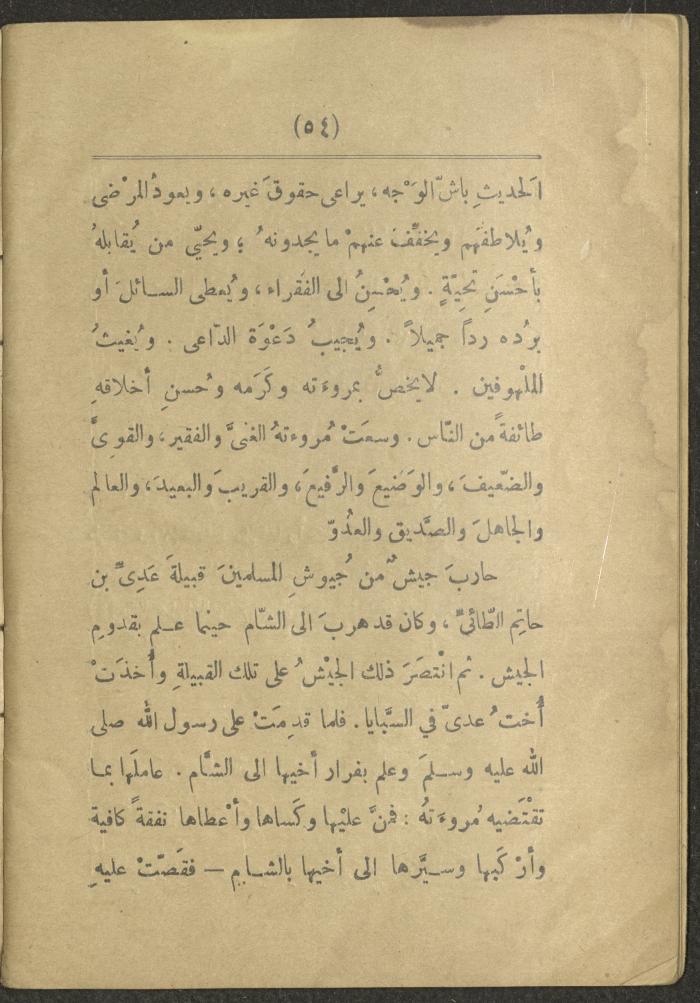 (٥٤)
الحديثِ باشّ الوَجْه، يراعى حقوقَ غيره، ويعودُ المرْضى
ويُلاطفُهم ويخفِّفُ عنهمْ ما يجدونهُ ؛ ويحيّى من يُقابلهُ
بأحْسَنِ تحيّةٍ . ويُحْسِنُ الى الفقراء، ويُعطى السـائلَ أو
يردُّه رداً جميلاً . ويُجيبُ دَعْوَة الدّاعى . ويُغيثُ
الملْهوفين . لا يخصُّ بمروءَته وكَرَمه وحُسنِ أخلاقهِ
طائفةً من النّاس . وسعَتْ مُروءتهُ الغنىَّ والفقير، والقوىَّ
والضّعيفَ، والوَضيعَ والرَّفيعَ، والقريبَ والبعيدَ، والعالم
والجاهلَ والصَّديق والعدُوّ
حاربَ جيشٌ من جُيوشِ المسلمينَ قبيلةَ عَدِىِّ بن
حاتِم الطّائىِّ، وكان قد هربَ الى الشّام حينما عـلم بقدومِ
الجيش . ثم انْتصَرَ ذلك الجيْشُ على تلك القبيلةِ وأُخذَتْ
أُختُ عدىّ في السَّبايا. فلما قدِمَتْ على رسول الله صلى
الله عليه وسـلمَ وعلم بفرار أخيها الى الشَّام . عاملَها بمـا
تقْتَضيه مُروءَتهُ : فمنَّ عليْها وكَساها وأعْطاها نفقةً كافية
وأرْكَبها وسـيَّرها الى أخيها بالشـامِ — فقَصّتْ عليهِ